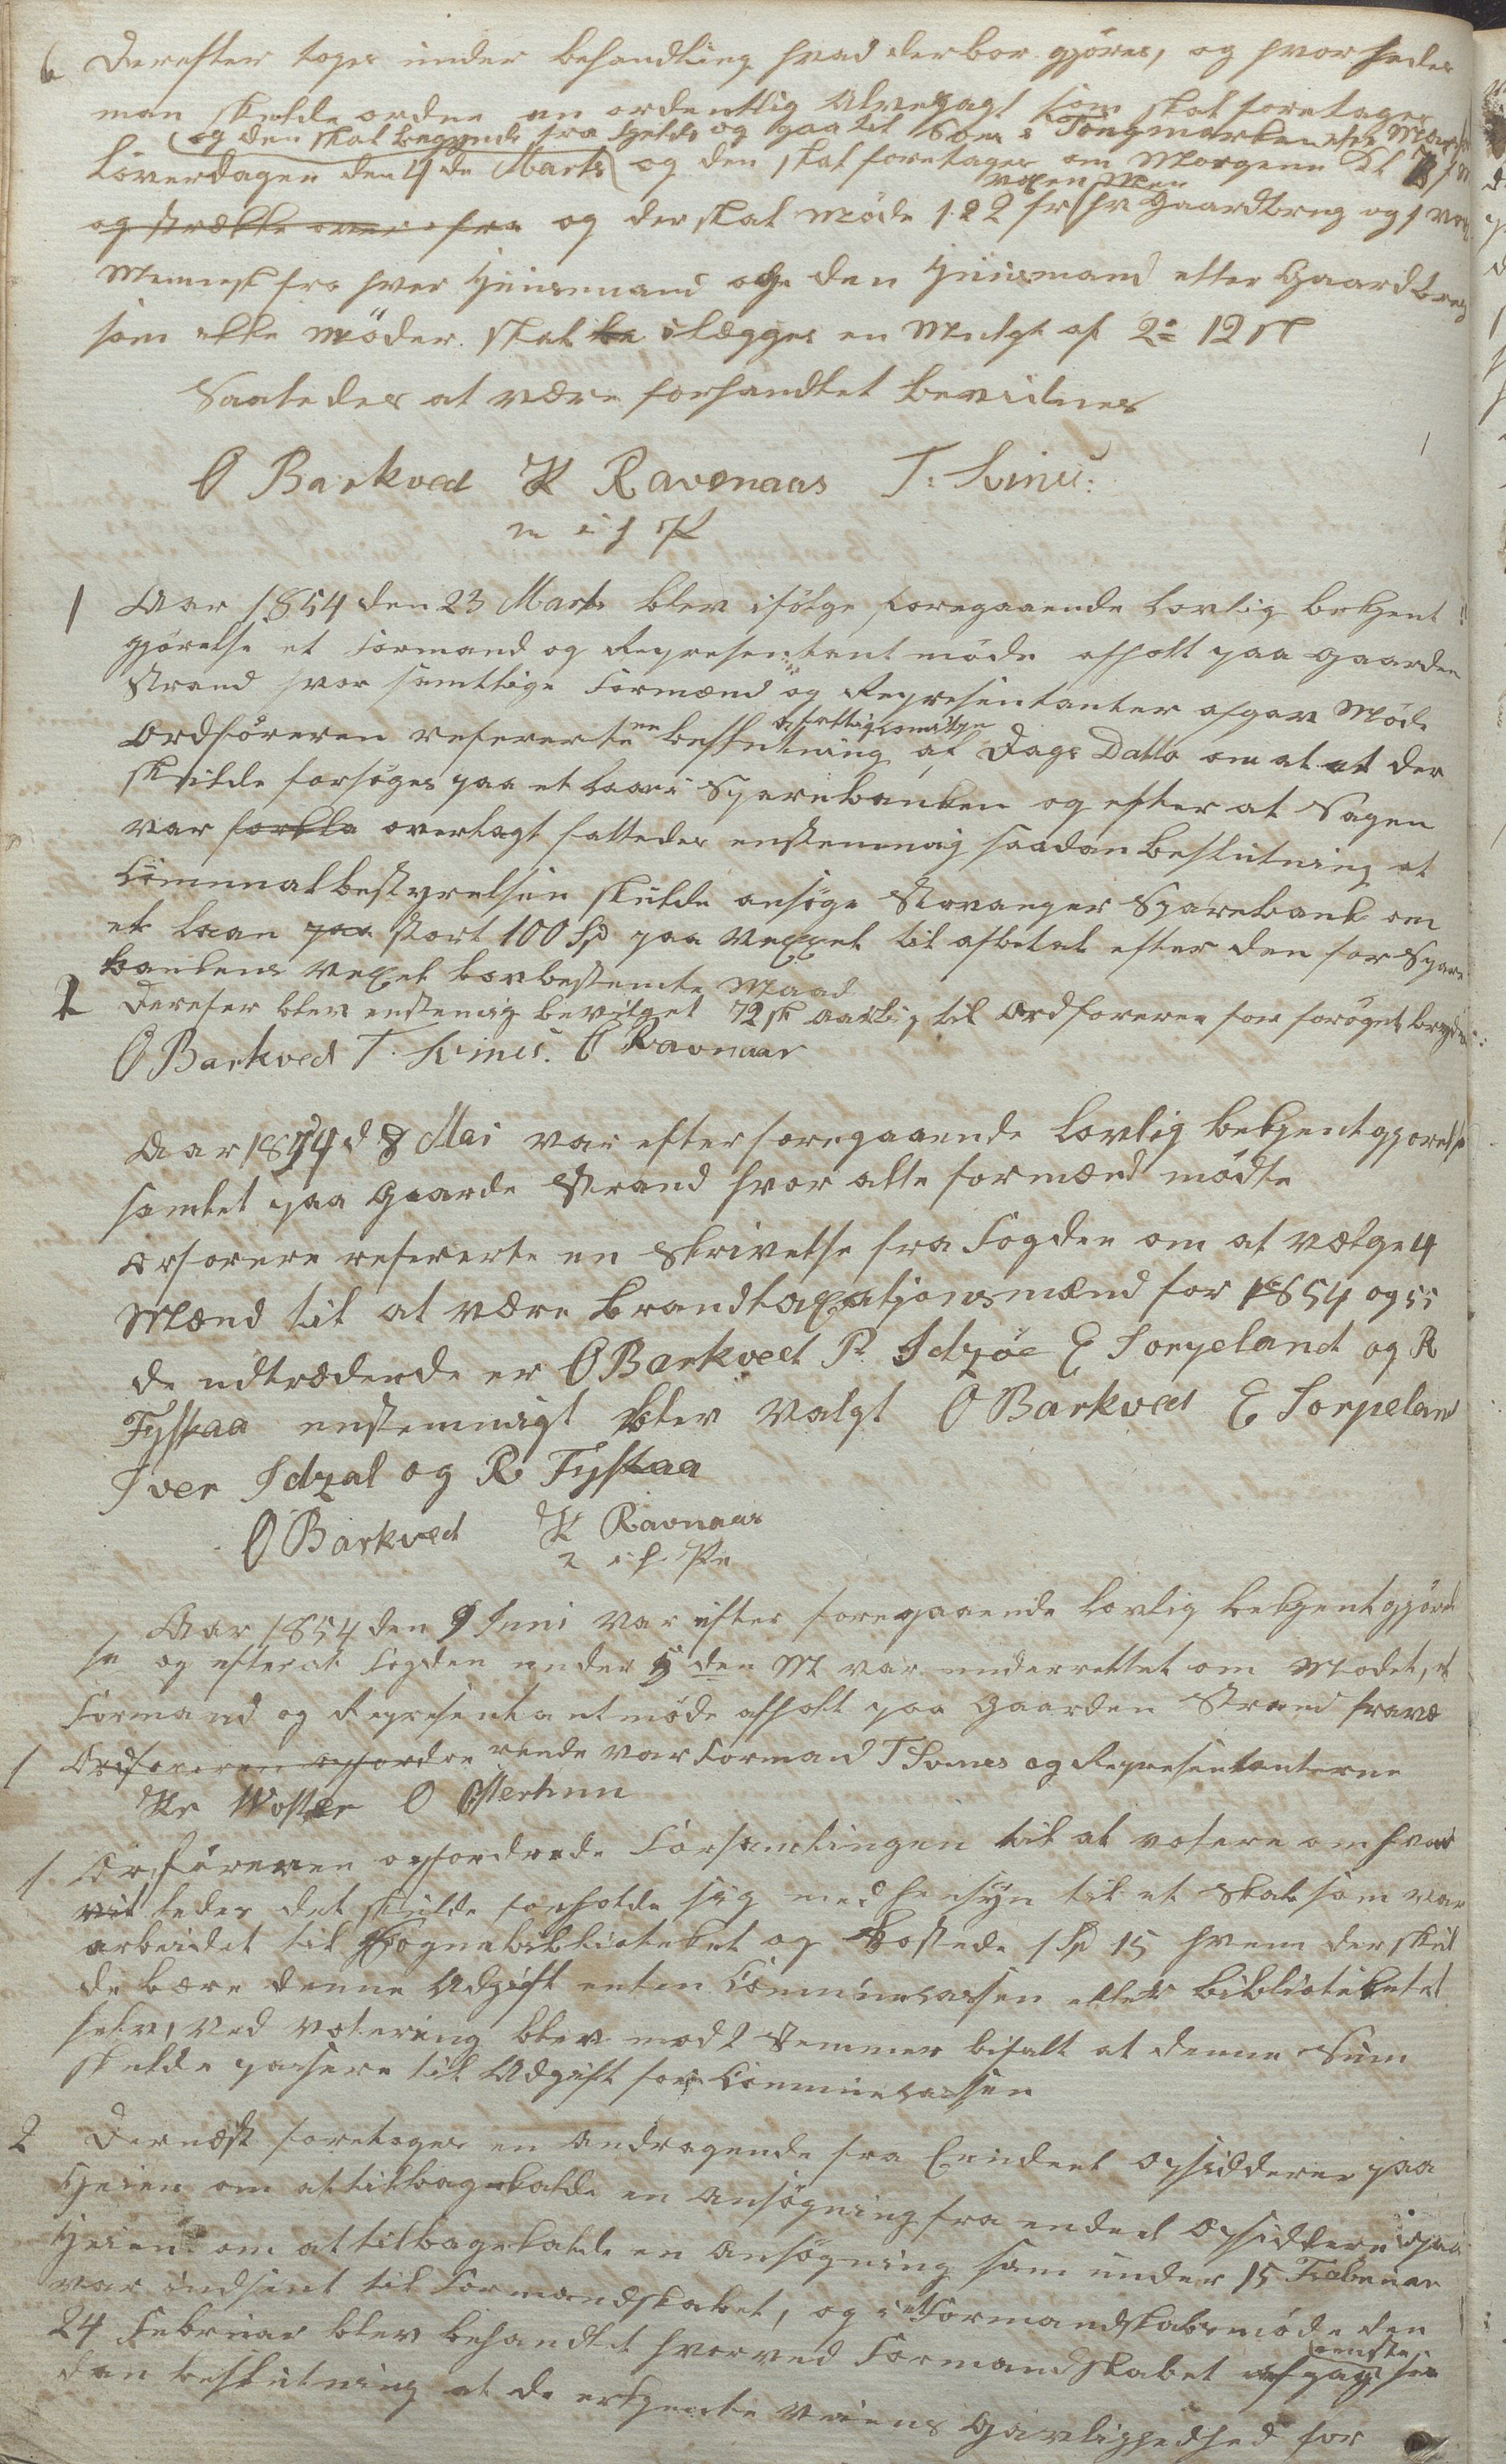 6 Derefter toges under behandling hvad der bør gjøres, og hvorledes
man skulde ordne en ordentlig Ulvejagt som skal foretages
og den skal begynde fra Helde og gaa til Søen i Tungmarken
Løverdagen den 4de Marts og den skal foretages om Morgenen Kl 7
voxen Men
og strække over fra og der skal Møde 1 a 2 fra hver Gaardbrug og 1 voxen
Mennesk fra hver Huusmand og den Huusmand eller Gaardbrug
som ikke Møder skal ilægges en Mulgt af 2 12 sk
Saaledes at være forhandlet bevidnes
O Barkved K Ravnaas T. Svines
m i h P
1 Aar 1854 den 23 Marts blev ifølge foregaaende Lovlig bekjent
gjørelse et Formand og Representant møde afholt paa Gaarden
Strand hvor samtlige Formænd og Representanter afgav Møde
Ordføreren refererte en beslutning af fattigcomitgen af Dags Datto om at at der
skulde forsøges paa et Laan i Sparebanken og efter at Sagen
var forkla overlagt fattedes enstemmig saadan beslutning at
Communalbestyrelsen skulde ansøge Stavanger Sparebank om
et Laan paa stort 100 Spd paa Vexel til afbetal efter den for Spare
bankens Vexel Lovbestemte Maad
2 Derefer blev enstemig bevilget 72 sk aarlig til Ordføreren for forøget bryderi
O Barkved T. Svines. O Ravnaas
Aar 1854 d 8 Mai var efter foregaaende Lovlig bekjentgjørelse
samlet paa Gaarde Strand hvor alle formænd mødte
Orførere refererte en Skrivelse fra Fogden om at vælge 4
Mænd til at være Brandtaxatjonsmænd for 1854 og 55
de udtrædende er O Barkved P. Idzøe E Torpeland og R
Fyskaa enstemmigt blev Valgt O Barkved E Torpeland
Iver Idzal og R Fyskaa
O Barkved K Ravnaas
m i h. Pen
Aar 1854 den 9 Juni var efter foregaaende Lovlig bekjentgjørel
se og efter at Fogden under 5 den M var underrettet om Mødet, et
Formand og Representantmøde afholt paa Gaarden Strand fravæ
1 Ordføreren opfordre rende var Formand T Svines og Representanterne
Kr Woster O Østerhuu
1. Orføreren opfordrede Forsamlingen til at votere om hvor
vit ledes det skulde forholde sig med hensyn til et Skab som var
arbeidet til Sognebiblioteket og kostede 1 Spd 15 hvem der skul
de bære denne Udgift enten Communekassen eller Biblioteketet
selv, ved votering blev mod 2 Stemmer bifalt at denne Sum
skulde passere til Udgift for Communekassen
2 Dernæst foretoges en Andragende fra Endeel Opsiddere paa
Heien om at tilbagekalde en Ansøgning fra endeel Opsiddere paa
Heien om at tilbagekalde en Ansøgning som under 15 Frebruar
var indsent til Formandskabet, og i et Formandskabsmøde den
24 Februar blev behandlet hvorved Formandskabet afgav saa
dan beslutning at de erkjente Veiens Gavlighedhed for